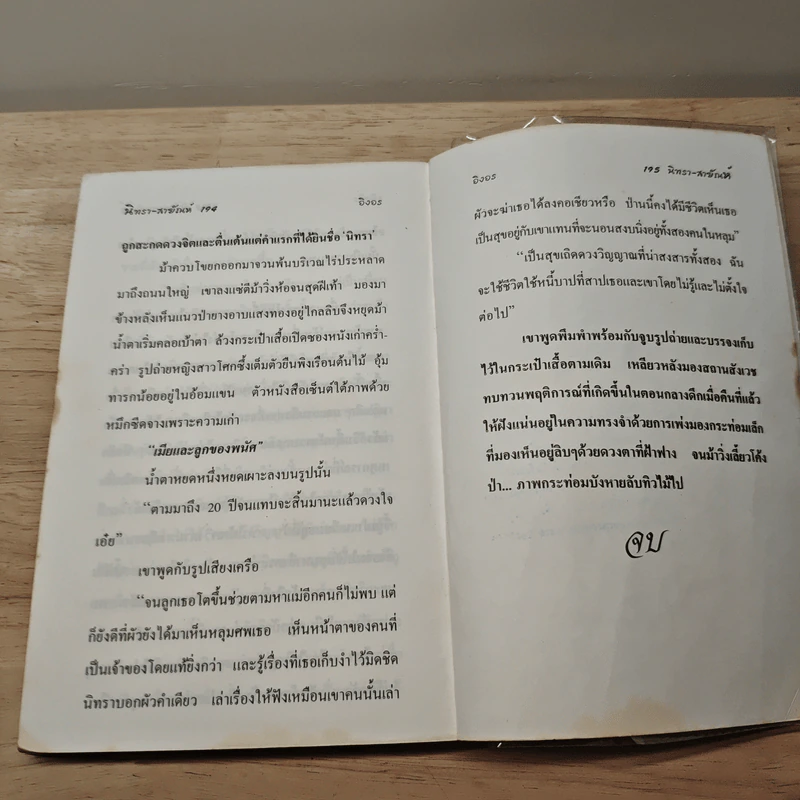 นิทรา-สายัณห์ 194
อิงอร
ถูกสะกดดวงจิตและตื่นเต้นแต่คำแรกที่ได้ยินชื่อ 'นิทรา'
ม้าควบโขยกออกมาจวนพ้นบริเวณไร่ประหลาด
มาถึงถนนใหญ่ เขาลงแซ่ตีม้าวิ่งห้อจนสุดฝีเท้า มองมา
ข้างหลังเห็นแนวป่ายางอาบแสงทองอยู่ไกลลิบจึงหยุดม้า
น้ำตาเริ่มคลอเบ้าตา ล้วงกระเป๋าเสื้อเปิดซองหนังเก่าคร่ำ-
คร่า รูปถ่ายหญิงสาวโศกซึ้งเต็มตัวยืนพิงเรือนต้นไม้ อุ้ม
ทารกน้อยอยู่ในอ้อมแขน ตัวหนังสือเซ็นต์ใต้ภาพด้วย
หมึกซีดจางเพราะความเก่า
"เมียและลูกของพนัศ"
น้ำตาหยดหนึ่งหยดเผาะลงบนรูปนั้น
"ตามมาถึง 20 ปีจนแทบจะสิ้นมานะแล้วดวงใจ
เอ๋ย"
เขาพูดกับรูปเสียงเครือ
"จนลูกเธอโตขึ้นช่วยตามหาแม่อีกคนก็ไม่พบ แต่
ก็ยังดีที่ผัวยังได้มาเห็นหลุมศพเธอ เห็นหน้าตาของคนที่
เป็นเจ้าของโดยแท้ยิ่งกว่า และรู้เรื่องที่เธอเก็บงำไว้มิดชิด
นิทราบอกผัวคำเดียว เล่าเรื่องให้ฟังเหมือนเขาคนนั้นเล่า
อิงอร
195 นิทรา-สายัณห์
ผัวจะฆ่าเธอได้ลงคอเชียวหรือ ป่านนี้คงได้มีชีวิตเห็นเธอ
เป็นสุขอยู่กับเขาแทนที่จะนอนสงบนิ่งอยู่ทั้งสองคนในหลุม"
"เป็นสุขเถิดดวงวิญญาณที่น่าสงสารทั้งสอง ฉัน
จะใช้ชีวิตใช้หนี้บาปที่สาปเธอและเขาโดยไม่รู้และไม่ตั้งใจ
ต่อไป"
เขาพูดพึมพำพร้อมกับจูบรูปถ่ายและบรรจงเก็บ
ไว้ในกระเป๋าเสื้อตามเดิม เหลียวหลังมองสถานสังเวช
ทบทวนพฤติการณ์ที่เกิดขึ้นในตอนกลางดึกเมื่อคืนที่แล้ว
ให้ฝังแน่นอยู่ในความทรงจำด้วยการเพ่งมองกระท่อมเล็ก
ที่มองเห็นอยู่ลิบๆด้วยดวงตาที่ฝ้าฟาง จนม้าวิ่งเลี้ยวโค้ง
ป่า... ภาพกระท่อมบังหายลับทิวไม้ไป
จบ